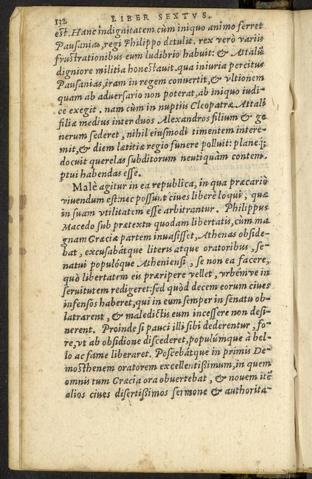 132 LIBER SEXTVS.
est. Hanc indignitatem cùm iniquo animo ferret
Pausanias, regi Philippo detulit. rex verò variis
frustrationibus eum ludibrio habuit: & Attalũ
digniore militia honestauit. qua iniuria percitus
Pausanias, iram in regem conuertit, & vltionem
quam ab aduersario non poterat, ab iniquo iudi-
ce exegit. nam cùm in nuptiis Cleopatræ Attali
filiæ medius inter duos Alexandros filium & ge
nerum sederet, nihil eiusmodi timentem intere-
mit, & diem lætitiæ regio funere polluit: planeq́;
docuit querelas subditorum neutiquàm contem-
ptui habendas esse.
Malè agitur in ea republica, in qua precariò
viuendum est: nec possunt ciues liberè loqui, quæ
in suam vtilitatem esse arbitrantur. Philippus
Macedo sub prætextu quodam libertatis, cùm ma
gnam Græciæ partem inuasisset, Athenas obside-
bat, excusabátque literis atque oratoribus, se-
natui populóque Atheniensi, se non ea facere,
quò libertatem eis præripere vellet, vrbémve in
seruitutem redigeret: sed quòd decem eorum ciues
infensos haberet, qui in eum semper in senatu ob-
latrarent, & maledictis eum incessere non desi-
nerent. Proinde si pauci illi sibi dederentur, fo-
re, vt ab obsidione discederet, populúmque à bel-
lo ac fame liberaret. Poscebátque in primis De-
mosthenem oratorem excellentissimum, in quem
omnis tum Græcia ora obuertebat, & nouem itē
alios ciues disertissimos sermone & authorita-